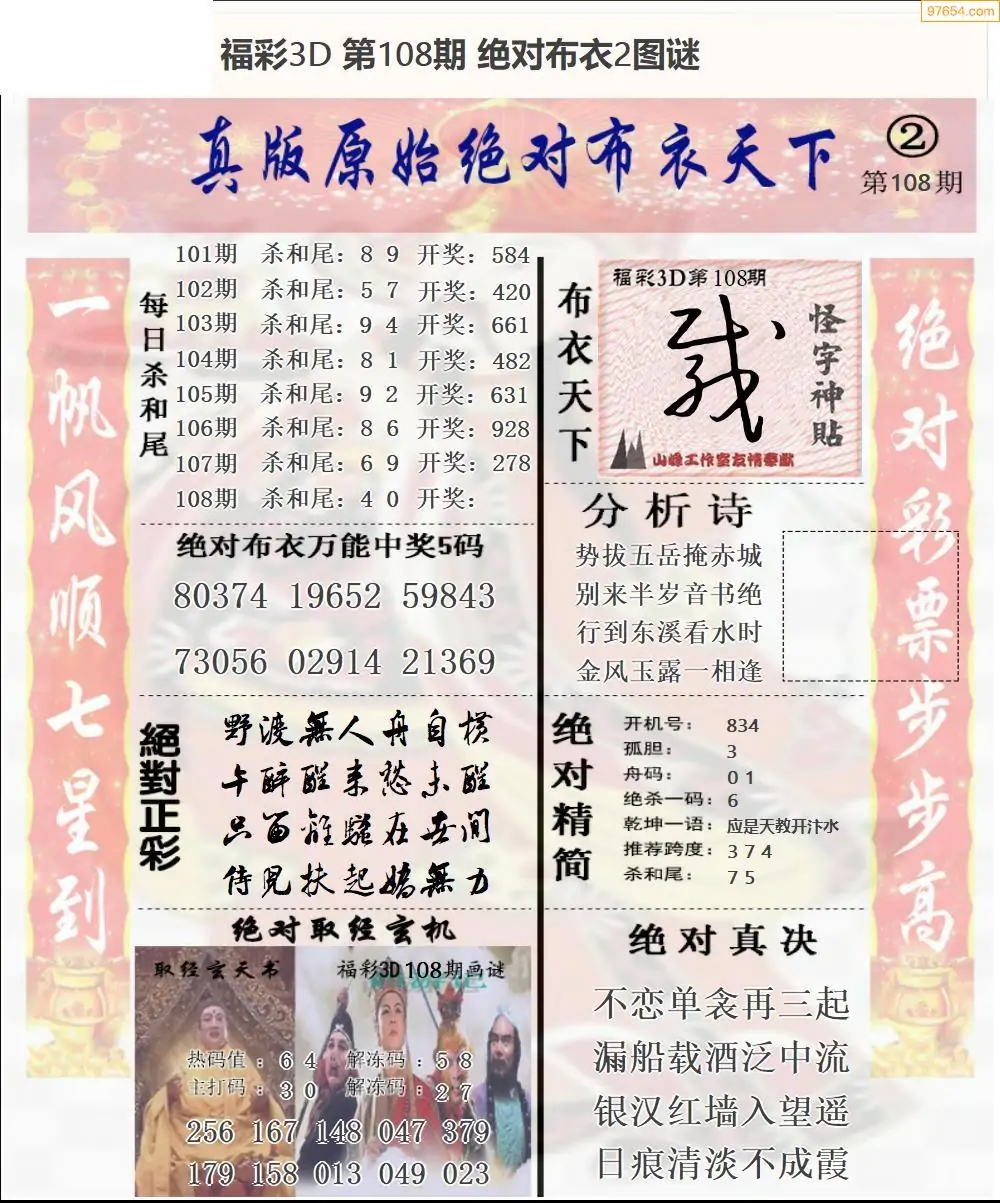 97654.com
福彩3D 第108期 绝对布衣2图谜
真版原始绝对布衣天下
②
第108期
一帆风顺七星到
每日杀和尾
101期 杀和尾：8 9 开奖：584
102期 杀和尾：5 7 开奖：420
103期 杀和尾：9 4 开奖：661
104期 杀和尾：8 1 开奖：482
105期 杀和尾：9 2 开奖：631
106期 杀和尾：8 6 开奖：928
107期 杀和尾：6 9 开奖：278
108期 杀和尾：4 0 开奖：
绝对布衣万能中奖5码
80374 19652 59843
73056 02914 21369
絕對正彩
野渡無人舟自横
午醉醒来愁未醒
只留離騷在世间
侍児扶起嬌無力
绝对取经玄机
取经玄天书
福彩3D108期画谜
热码值：6 4 解冻码：5 8
主打码：3 0 解冻码：2 7
256 167 148 047 379
179 158 013 049 023
布衣天下
福彩3D第108期
怪字神貼
山峰工作室友情奉献
分析诗
势拔五岳掩赤城
别来半岁音书绝
行到东溪看水时
金风玉露一相逢
绝对精简
开机号： 834
孤胆： 3
舟码： 0 1
绝杀一码：6
乾坤一语：应是天教开汴水
推荐跨度：3 7 4
杀和尾： 7 5
绝对真决
不恋单衾再三起
漏船载酒泛中流
银汉红墙入望遥
日痕清淡不成霞
绝对彩票步步高